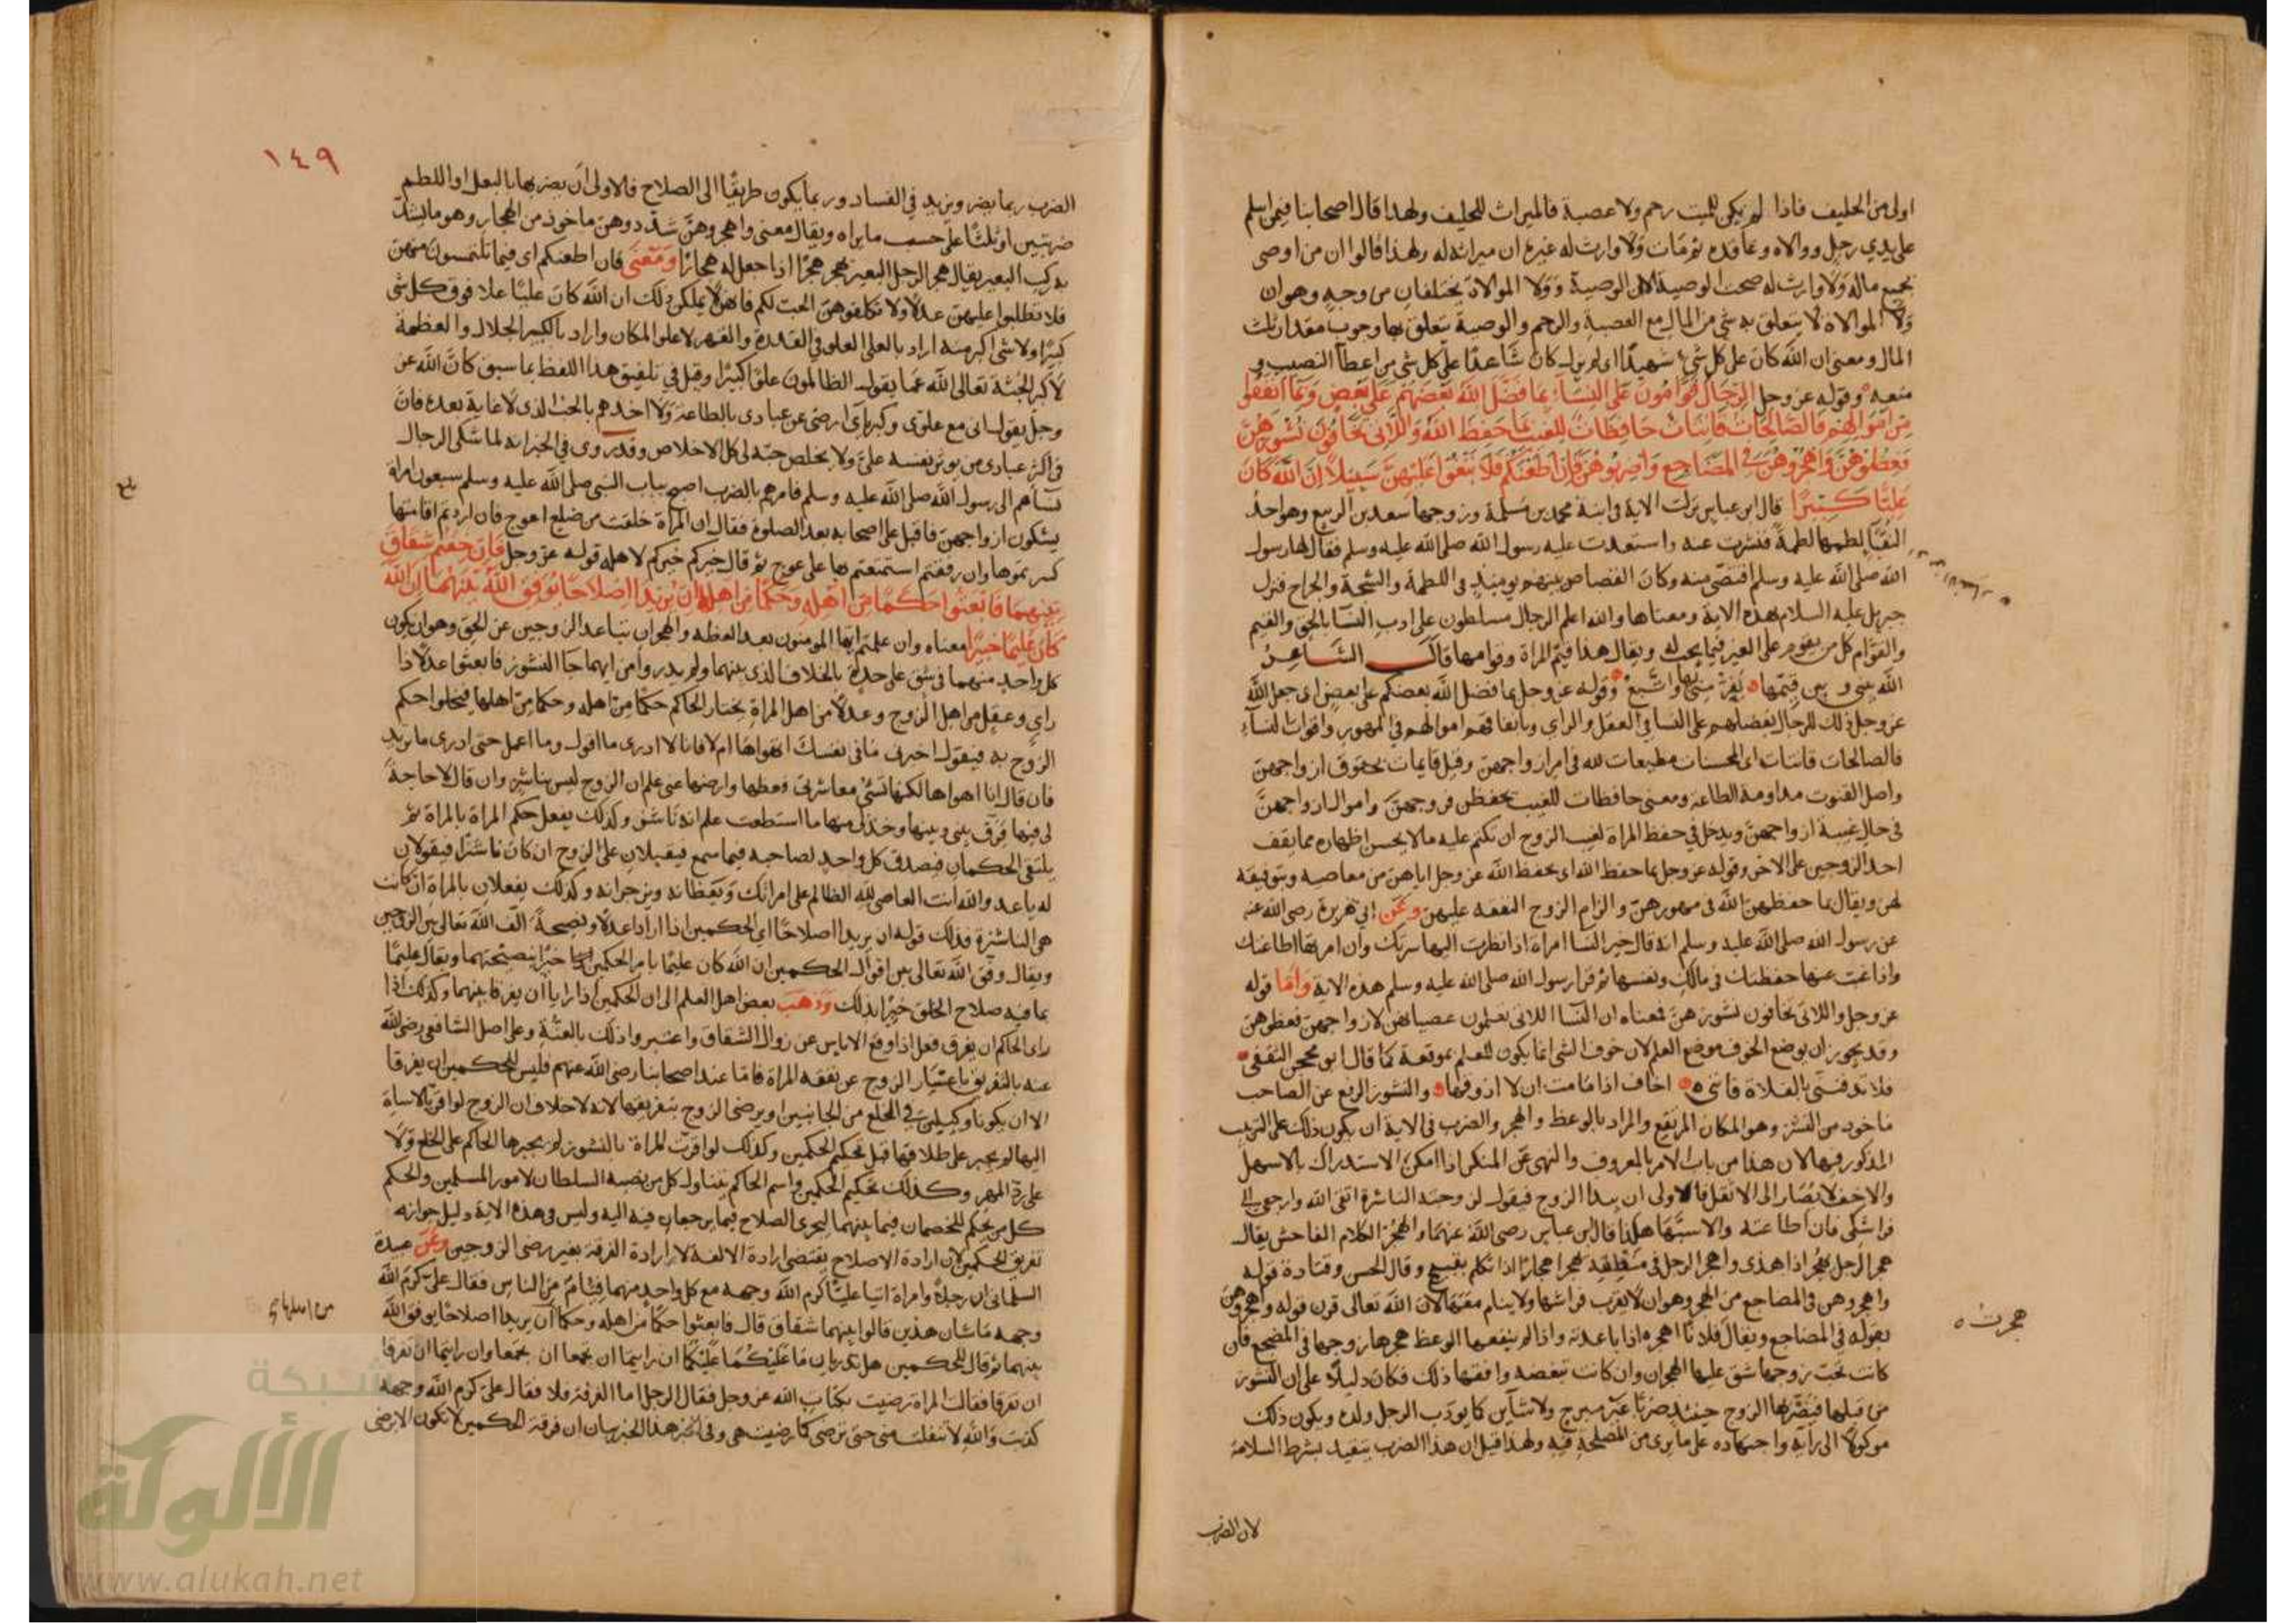 اولى من الحليف فاذا لم يكن للميت رحم ولا عصبة فالميراث للحليف ولهذا قال اصحابنا فيمن اسلم
على يدي رجل ووالاه وعاقده ثم مات ولا وارث له غيره ان ميراثه له ولهذا قالوا ان من اوصى
بجميع ماله ولا وارث له صحت الوصية الا ان الوصية وولا الموالاة يختلفان من وجه وهو ان
ولا الموالاة لا يتعلق به شي من المال مع العصبة والرحم والوصية يتعلق بها وجوب مقدار ثلث
المال ومعنى ان الله كان على كل شي شهيدا اي لم يزل كان شاهدا على كل شي من اعطآ النصيب و
منعه وقوله عز وجل الرجال قوامون على النساء بما فضل الله بعضهم على بعض وبما انفقوا
من اموالهم فالصالحات قانتات حافظات للغيب بما حفظ الله واللاتي تخافون نشوزهن
فعظوهن واهجروهن في المضاجع واضربوهن فان اطعنكم فلا تبغوا عليهن سبيلا ان الله كان
عليا كبيرا قال ابن عباس نزلت الاية في ابنة محمد بن مسلمة وزوجها سعد بن الربيع وهو احد
النقبا لطمها لطمة فنشزت عنه واستعدت عليه رسول الله صلى الله عليه وسلم فقال لها رسول
الله صلى الله عليه وسلم اقتصي منه وكان القصاص بينهم يوميذ في اللطمة والشجة والجراح فنزل
جبريل عليه السلام بهذه الاية ومعناها والله اعلم الرجال مسلطون على ادب النسآ بالحق والقيم
والقوام كل من يقوم على الغير فيما يجب له ويقال هذا قيم المراة وقوامها قال الشاعر
الله بيني وبين قيمها يفر مني بها واتبع وقوله عز وجل بما فضل الله بعضكم على بعض اي جعل الله
عز وجل ذلك للرجال بفضلهم على النسا في العقل والراي وبانفاقهم اموالهم في المهور واقوات النسآء
فالصالحات قانتات اي المحسنات مطيعات لله في امر ازواجهن وقيل قايمات بحقوق ازواجهن
واصل القنوت مداومة الطاعة ومعنى حافظات للغيب يحفظن فروجهن واموال ازواجهن
في حال غيبة ازواجهن ويدخل في حفظ المراة لغيب الزوج ان تكتم عليه ما لا يحسن اظهاره مما يقف
احد الزوجين على الاخر وقوله عز وجل بما حفظ الله اي بحفظ الله عز وجل اياهن من معاصيه وبتوفيقه
لهن ويقال بما حفظهن الله في مهورهن والزام الزوج النفقة عليهن وعن ابي هريرة رضى الله عنه
عن رسول الله صلى الله عليه وسلم انه قال خير النسا امراة اذا نظرت اليها سرتك وان امرتها اطاعتك
واذا غبت عنها حفظتك في مالك ونفسها ثم قرا رسول الله صلى الله عليه وسلم هذه الاية واما قوله
عز وجل واللاتي تخافون نشوزهن فمعناه ان النسآ اللاتي تعلمون عصيانهن لازواجهن فعظوهن
وقد يجوز ان يوضع الخوف موضع العلم لان خوف الشي انما يكون للعلم بموقعه كما قال ابو محجن الثقفي
فلا تدفنني بالفلاة فانني اخاف اذا ما مت ان لا اذوقها والنشوز الرفع عن الصاحب
ماخوذ من النشز وهو المكان المرتفع والمراد بالوعظ والهجر والضرب في الاية ان يكون ذلك على الترتيب
المذكور فيها لان هذا من باب الامر بالمعروف والنهي عن المنكر اذا امكن الاستدراك بالاسهل
والاخف لا يصار الى الاثقل فالاولى ان يبدا الزوج فيقول لزوجته الناشزة اتقى الله وارجعي الى
فراشكى فان اطاعته والا سبها هكذا قال ابن عباس رضى الله عنهما والهجر الكلام الفاحش يقال
هجر الرجل يهجر اذا هذى واهجر الرجل في منطقه يهجر اهجارا اذا تكلم بقبيح وقال الحسن وقتادة قوله
واهجروهن في المضاجع من الهجر وهو ان لا يقرب فراشها ولا ينام معها لان الله تعالى قرن قوله واهجروهن
بقوله في المضاجع ويقال فلانا اهجره اذا باعدته واذا لم ينفعها الوعظ هجرها زوجها في المضجع فان
كانت تحب زوجها شق عليها الهجران وان كانت تبغضه وافقها ذلك فكان دليلا على ان النشوز
من قبلها فيضربها الزوج حينئذ ضربا غير مبرح ولا شآين كما يودب الرجل ولده ويكون ذلك
موكولا الى رآيه واجتهاده على ما يرى من المصلحة فيه ولهذا قيل ان هذا الضرب يتقيد بشرط السلامة
هجرت
لان الضرب
١٤٩
الضرب ربما يضر ويزيد في الفساد وربما يكون طريقا الى الصلاح فالاولى ان يضربها بالنعل او اللطم
ضربتين او ثلثا على حسب ما يراه ويقال معنى واهجروهن شدّدوهن ماخوذ من الهجار وهو ما يشد
به ركب البعير يقال هجر الرجل البعير يهجر هجرا اذا جعل له هجارا ومعنى فان اطعنكم اي فيما تلتمسون منهن
فلا تطلبوا عليهن عدلا ولا تكلفوهن الحب لكم فانهن لا يملكن ذلك ان الله كان عليا علا فوق كل شي
كبيرا ولا شي اكبر منه اراد بالعلي العلو في القدرة والقهر لا علو المكان واراد بالكبير الجلال والعظمة
لا كبر الجثة تعالى الله عما يقول الظالمون علوا كبيرا وقيل في تلفيق هذا اللفظ بما سبق كان الله عز
وجل يقول اني مع علوي وكبريآي ارضى عن عبادي بالطاعة ولا اخذهم بالحب الذي لا غاية بعده فان
في اكثر عبادي من يوثر نفسه عليّ ولا يخلص حبه لي كل الاخلاص وقد روى في الخبر انه لما شكى الرجال
نسآهم الى رسول الله صلى الله عليه وسلم فامرهم بالضرب اصبح بباب النبي صلى الله عليه وسلم سبعون امراة
يشكون ازواجهن فاقبل على اصحابه بعد الصلوة فقال ان المراة خلقت من ضلع اعوج فان اردتم اقامتها
كسرتموها وان رفقتم استمتعتم بها على عوج ثم قال خيركم خيركم لاهله قوله عز وجل فان خفتم شقاق
بينهما فابعثوا حكما من اهله وحكما من اهلها ان يريدا اصلاحا يوفق الله بينهما ان الله
كان عليما خبيرا معناه وان علمتم ايها المومنون بعد العظة والهجران تباعد الزوجين عن الحق وهو ان يكون
كل واحد منهما في شق على حدة بالخلاف الذي بينهما ولم يدروا من ايهما جا النشوز فابعثوا عدلا ذا
راي وعقل من اهل الزوج وعدلا من اهل المراة يختار الحاكم حكما من اهله وحكما من اهلها فيخلوا حكم
الزوج به فيقول اخبرني ما في نفسك اتهواها ام لا فانا لا ادري ما اقول وما اعمل حتى ادري ما تريد
فان قال انا اهواها لكنها تسئ معاشرتي فعظها وارضها عني علم ان الزوج ليس بناشز وان قال لا حاجة
لي فيها فرق بيني وبينها وخذ لي منها ما استطعت علم انه ناشز وكذلك يفعل حكم المراة بالمراة ثم
يلتقي الحكمان فيصدق كل واحد لصاحبه فيما سمع فيقبلان على الزوج ان كان ناشزا فيقولان
له يا عدو الله انت العاصي لله الظالم على امراتك ويعظانه ويزجرانه وكذلك يفعلان بالمراة ان كانت
هي الناشزة فذلك قوله ان يريدا اصلاحا اي الحكمين اذا ارادا عدلا ونصيحة الف الله تعالى بين الزوجين
ويقال وفق الله تعالى بين اقوال الحكمين ان الله كان عليما بامر الحكمين خبيرا بنصيحتهما ويقال عليما
بما فيه صلاح الخلق خبيرا بذلك وذهب بعض اهل العلم الى ان الحكمين اذا رايا ان يفرقا بينهما وكذلك اذا
راى الحاكم ان يفرق فعل اذا وقع الاياس عن زوال الشقاق واعتبروا ذلك بالعنة وعلى اصل الشافعي رضى الله
عنه بالتفريق باعسار الزوج عن نفقة المراة فاما عند اصحابنا رضى الله عنهم فليس للحكمين ان يفرقا
الا ان يكونا وكيلين في الخلع من الجانبين او يرضى الزوج بتفريقهما لانه لا خلاف ان الزوج لو اقر بالاساة
اليها لم يجبر على طلاقها قبل تحكيم الحكمين وكذلك لو اقرت المراة بالنشوز لم يجبرها الحاكم على الخلع ولا
على رد المهر وكذلك تحكيم الحكمين واسم الحاكم يتناول كل من نصبه السلطان لامور المسلمين والحكم
كل من يحكم للخصمان فيما بينهما ليجرى الصلاح فيما يرجعان فيه اليه وليس في هذه الاية دليل جوازه
تفريق الحكمين لان ارادة الاصلاح يقتضي ارادة الالفة لا ارادة الفرقة بغير رضى الزوجين وعن عبيدة
السلماني ان رجلا وامراة اتيا عليا كرم الله وجهه مع كل واحد منهما فئام من الناس فقال علي كرم الله
وجهه ما شان هذين قالوا بينهما شقاق قال فابعثوا حكما من اهله وحكما ان يريدا اصلاحا يوفق الله
من اهلها
بينهما ثم قال للحكمين هل تدريان ما عليكما عليكما ان رايتما ان تجمعا ان تجمعا وان رايتما ان تفرقا
ان تفرقا فقالت المراة رضيت بكتاب الله عز وجل فقال الرجل اما الفرقة فلا فقال علي كرم الله وجهه
كذبت والله لا تنفلت مني حتى ترضى كما رضيت هي وفي هذا الخبر بيان ان فرقة الحكمين لا تكون الا برضى
شبكة
الألوكة
www.alukah.net